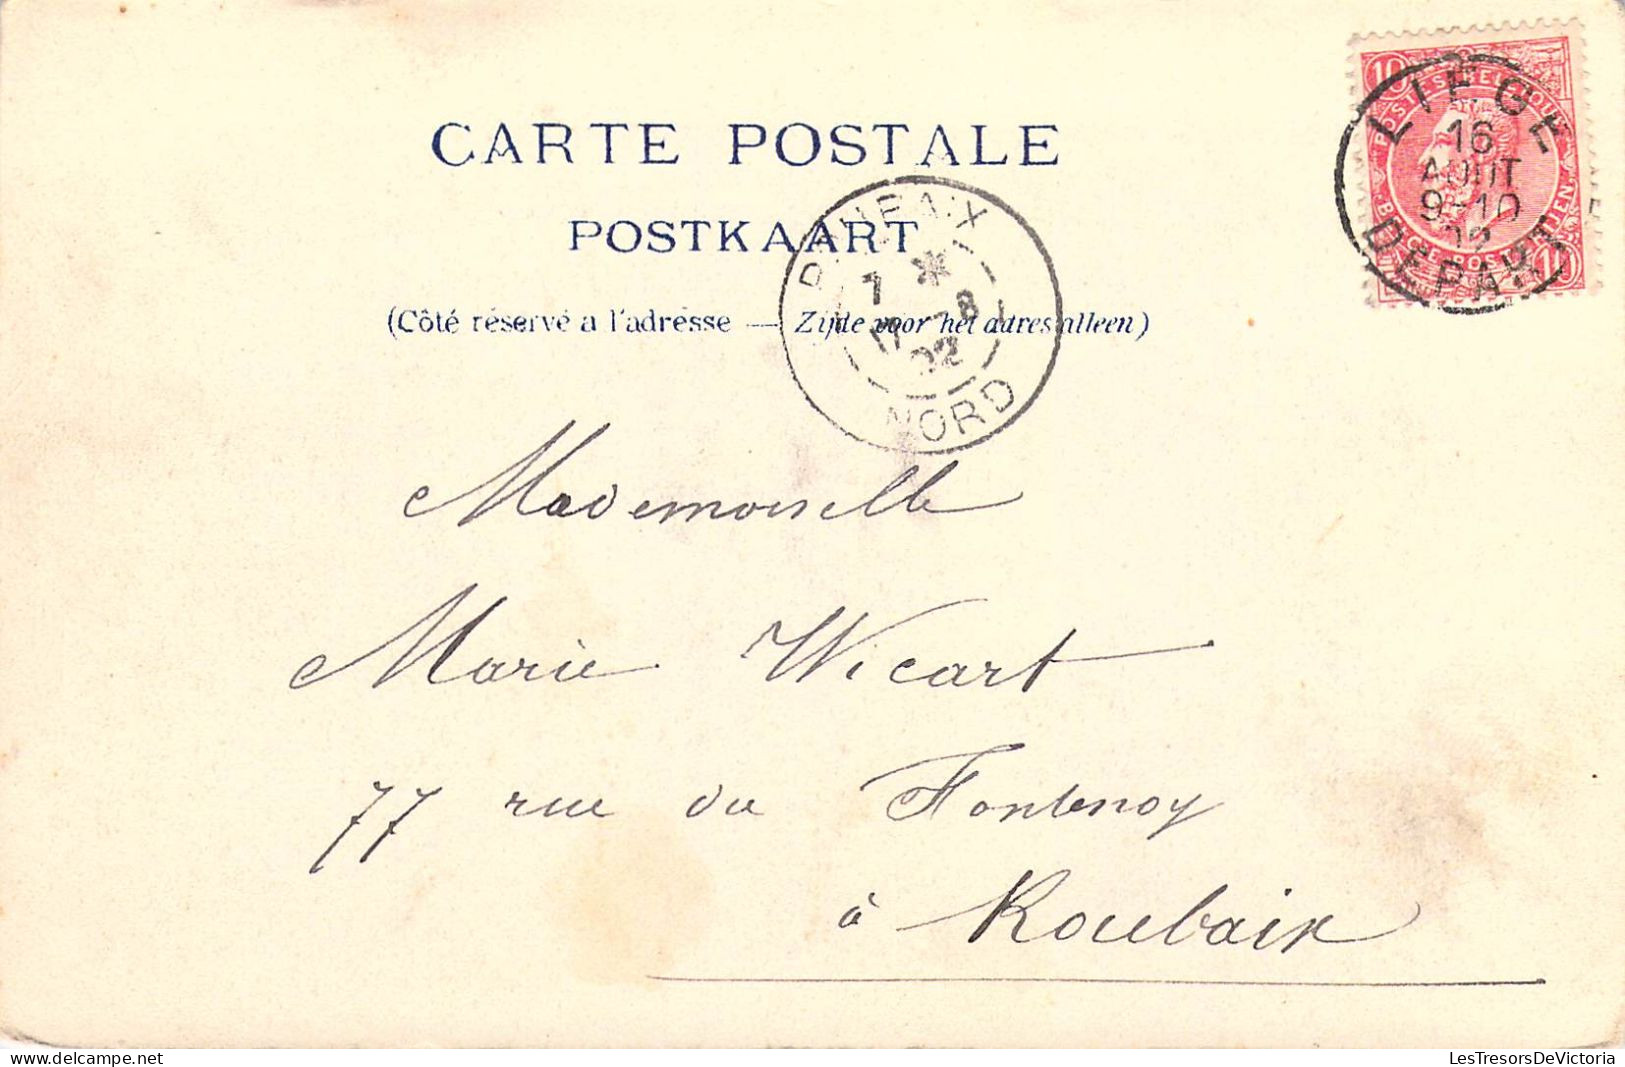 CARTE POSTALE
POSTKAART
(Côté réservé a l'adresse — Zijde voor het adres alleen)
10
POSTES BELGIQUE
10
LIEGE
16
AOUT
9-10
02
DEPART
ROUBAIX
7 *
17 -8
02
NORD
Mademoiselle
Marie Wicart
77 rue du Fontenoy
à Roubaix
delcampe.net
LesTresorsDeVictoria